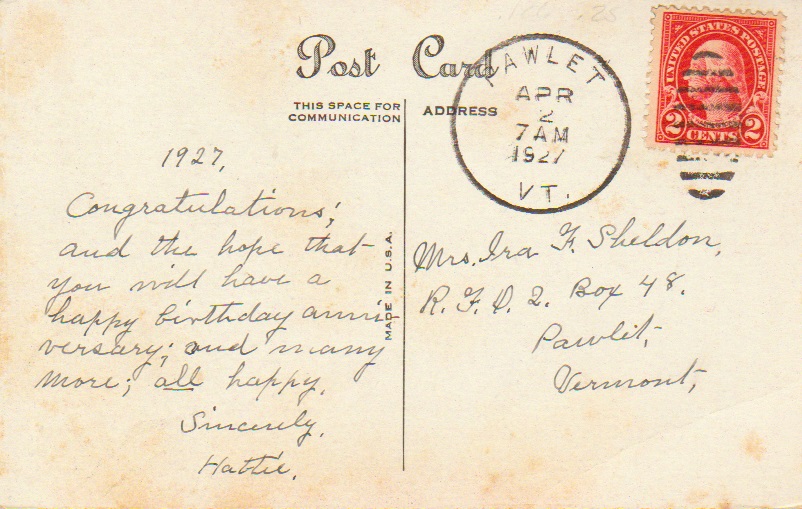 Post Card
THIS SPACE FOR
COMMUNICATION
ADDRESS
PAWLET
APR
2
7 AM
1927
VT.
UNITED STATES POSTAGE
2 CENTS 2
1927,
Congratulations;
and the hope that
you will have a
happy birthday anni-
versary; and many
more; all happy.
Sincerely,
Hattie.
MADE IN U.S.A.
Mrs. Ira F. Sheldon,
R. F. D. 2. Box 48.
Pawlet,
Vermont,